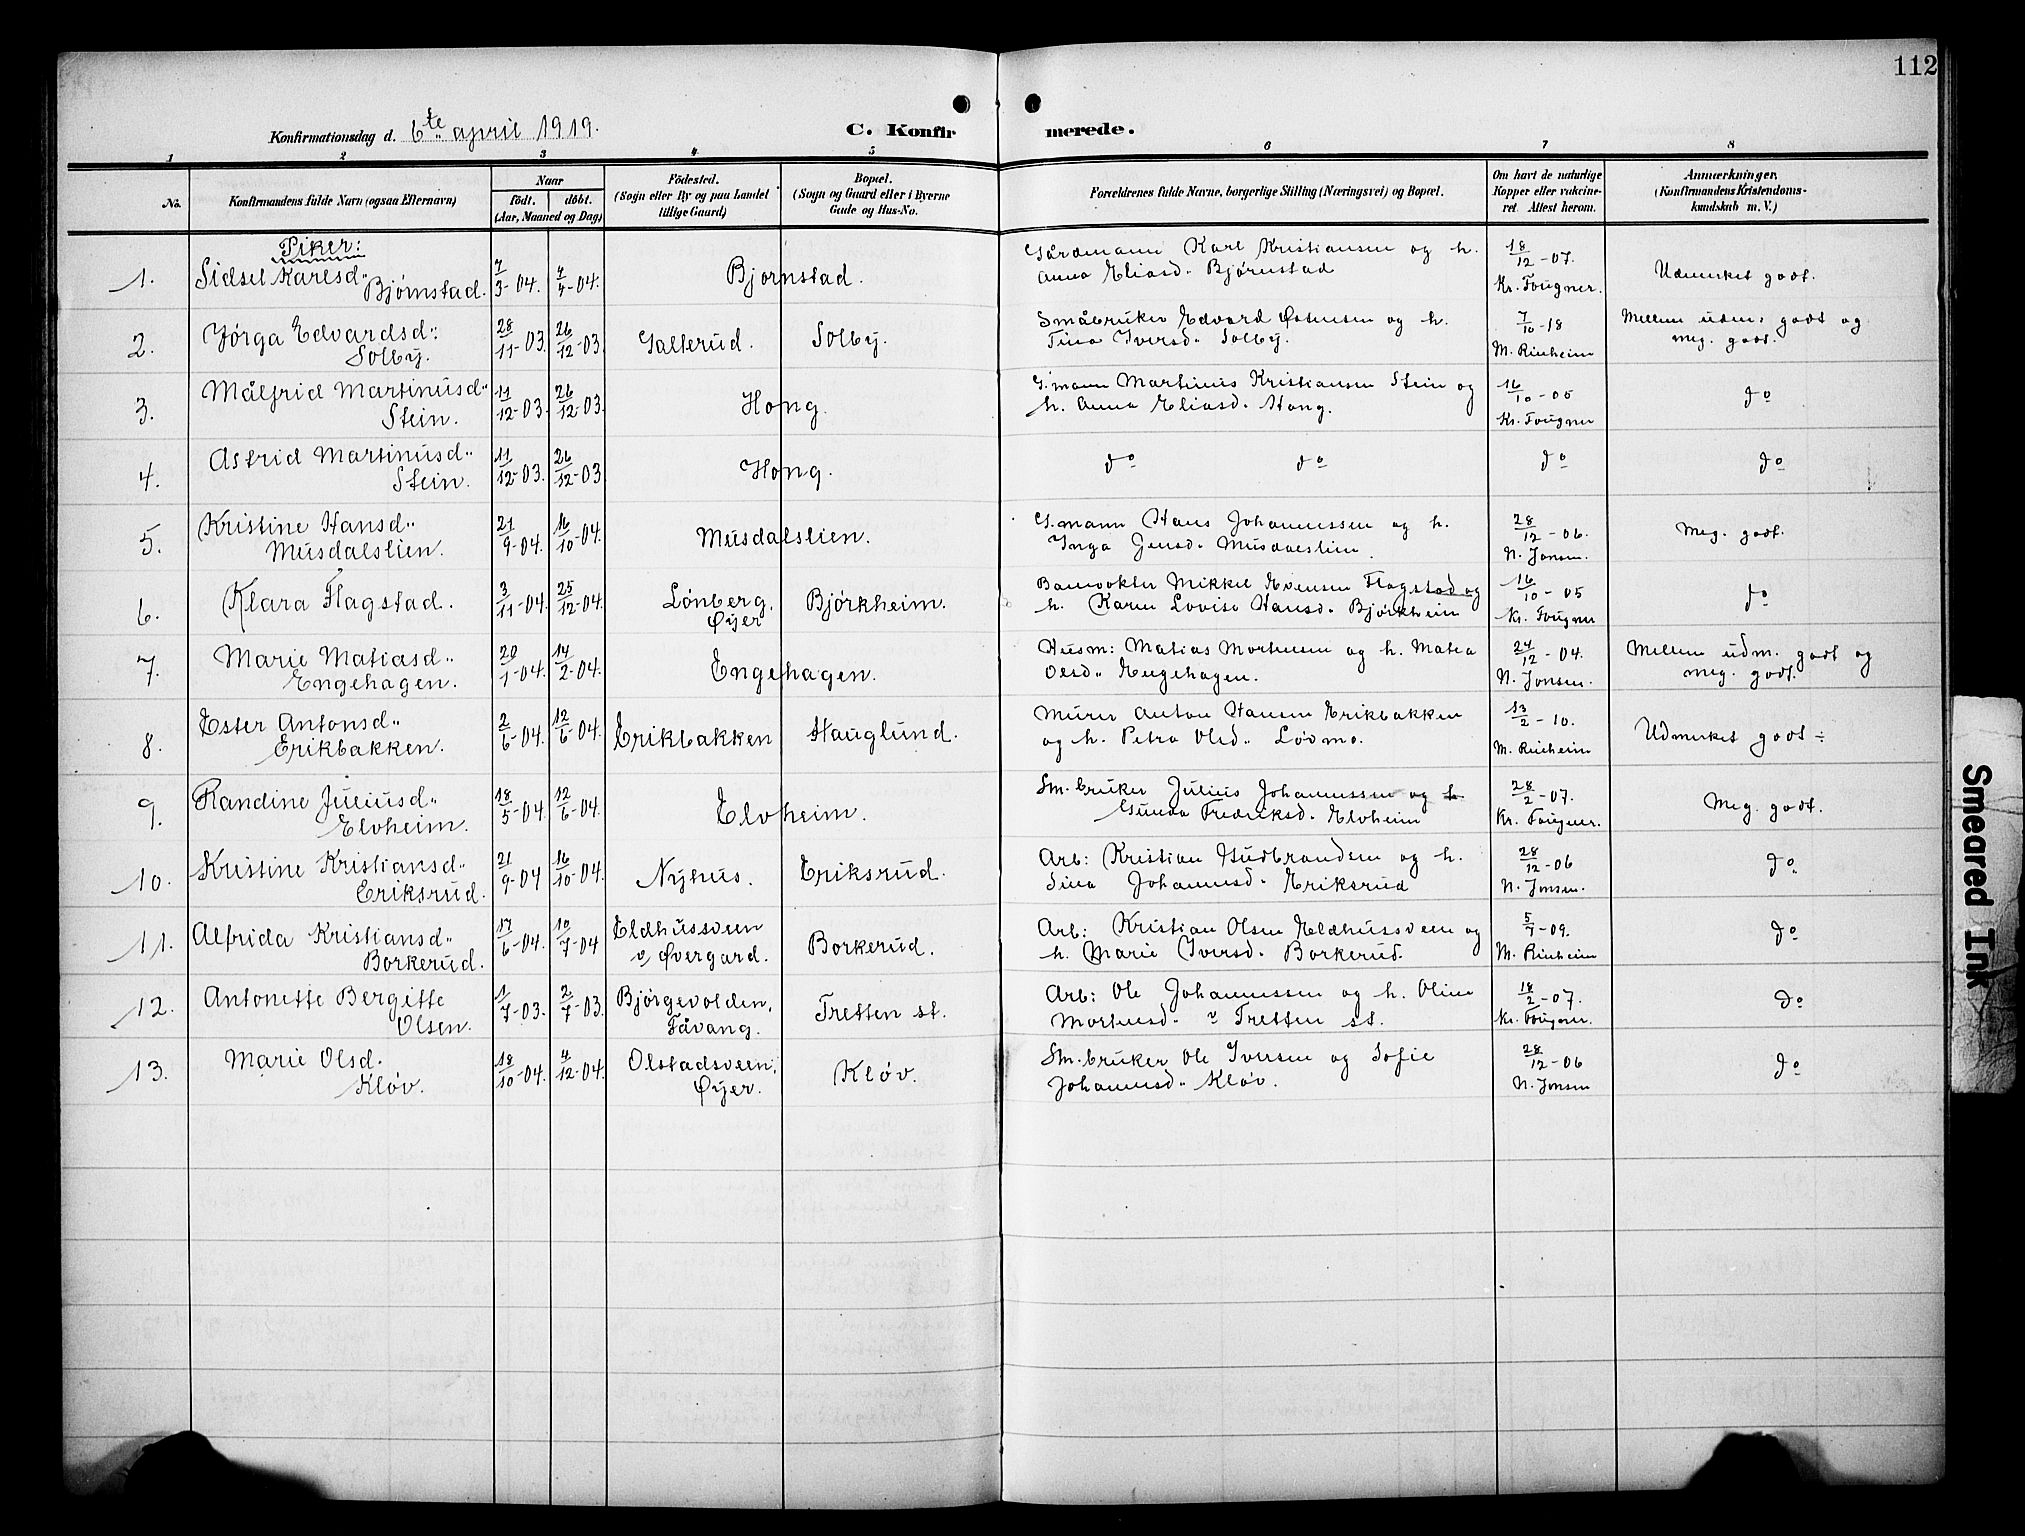 112
Konfirmationsdag d. 6te april 1919.
C. Konfirmerede.
1 2 3 4 5 6 7 8
No.
Konfirmandens fulde Navn (ogsaa Efternavn)
Naar
födt. döbt.
(Aar, Maaned og Dag)
Födested.
(Sogn eller By og paa Landet
tillige Gaard)
Bopæl.
(Sogn og Gaard eller i Byerne
Gade og Hus-No.
Forældrenes fulde Navne, borgerlige Stilling (Næringsvei) og Bopæl.
Om havt de naturlige
Kopper eller vakcine-
ret. Attest herom.
Anmærkninger.
(Konfirmandens Kristendoms-
kundskab m. V.)
Piker:
1. Sidsel Karlsd.. Bjørnstad. 7/3-04. 4/4-04. Bjørnstad.
Gårdmann Karl Kristiansen og h.
Anna Eliasd. Bjørnstad
18/12-07. Kr. Fougner.
Udmerket godt.
2. Jørga Edvardsd.. Solby. 28/11-03. 26/12-03. Solby.
Småbruker Edvard Østensen og h.
Tina Iversd. Solby.
7/10-18 M. Rinheim
Mellem udm. godt og
meg. godt.
3. Målfrid Martinusd.. Stein. 11/12-03. 26/12-03. Hong.
G.mann Martinus Kristiansen Stein og
h. Anna Eliasd. Hong.
16/10-05 Kr. Fougner
do
4. Astrid Martinusd.. Stein. 11/12-03. 26/12-03 Hong.
do do
do
do
5. Kristine Hansd.. Musdalslien. 21/9-04. 16/10-04. Musdalslien.
G.mann Hans Johannessen og h.
Inga Jensd. Musdalslien.
28/12-06. N. Jonsen.
Meg. godt.
6. Klara Flagstad. 3/11-04. 25/12-04. Lönberg, Øyer Bjørkheim.
Banevokter Mikkel Evensen Flagstad og
h. Karen Lovise Hansd. Bjørkheim
16/10-05 Kr. Fougner
do
7. Marie Matiasd.. Engehagen. 20/1-04. 14/2-04. Engehagen.
Husm: Matias Mortensen og h. Matea
Olsd.. Engehagen.
24/12-04. N. Jonsen.
Mellem udm. godt og
meg. godt.
8. Ester Antonsd.. Erikbakken. 2/6-04. 12/6-04. Erikbakken Hauglund.
Murer Anton Hansen Erikbakken
og h. Petra Olsd.. Løvmo.
13/2-10. M. Rinheim
Udmerket godt ÷
9. Randine Juliusd.. Elvheim. 18/5-04. 12/6-04. Elvheim.
Sm.bruker Julius Johannessen og h.
Gunda Fredriksd. Elvheim
28/2-07. Kr. Fougner.
Meg. godt.
10. Kristine Kristiansd.. Eriksrud. 21/9-04 16/10-04. Nyhus. Eriksrud.
Arb: Kristian Gudbrandsen og h.
Sina Johannesd. Eriksrud
28/12-06 N. Jonsen.
do
11. Alfrida Kristiansd.. Borkerud. 17/6-04. 10/7-04 Eldhussveen
v, Øvergard. Borkerud.
Arb: Kristian Olsen Eldhussveen og
h. Marie Iversd. Borkerud.
5/7-09. M. Rinheim
do
12. Antonette Bergitte Olsen. 1/7-03. 2/7-03. Bjørgevolden, Fåvang. Tretten st.
Arb: Ole Johannessen og h. Oline
Mortensd. v Tretten st.
18/2-07. Kr. Fougner.
do
13. Marie Olsd. Kløv. 18/10-04. 4/12-04. Olstadsveen, Øyer. Kløv.
Sm.bruker Ole Iversen og Sofie
Johannesd.. Kløv.
28/12-06 N. Jonsen
do
Smeared Ink